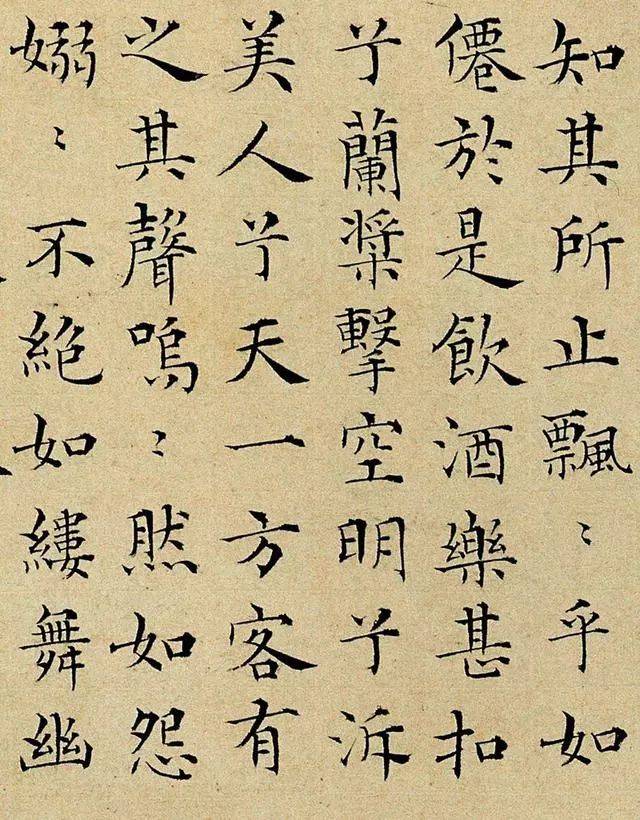 知其所止飄〻乎如
僊於是飲酒樂甚扣
兮蘭槳擊空明兮泝
美人兮天一方客有
之其聲嗚〻然如怨
嫋〻不絕如縷舞幽